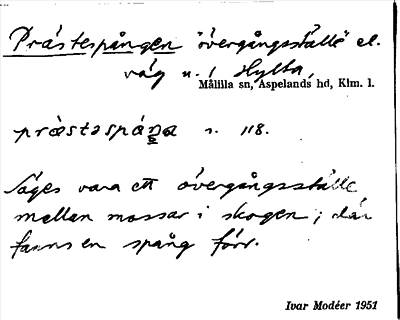 Prästespången "övergångsställe" el.
väg u. / Hylta,
Målilla sn, Aspelands hd, Klm. l.
præstəspáŋa s. 118.
Säges vara ett övergångsställe
mellan mossar i skogen; där
fanns en spång förr.
Ivar Modéer 1951